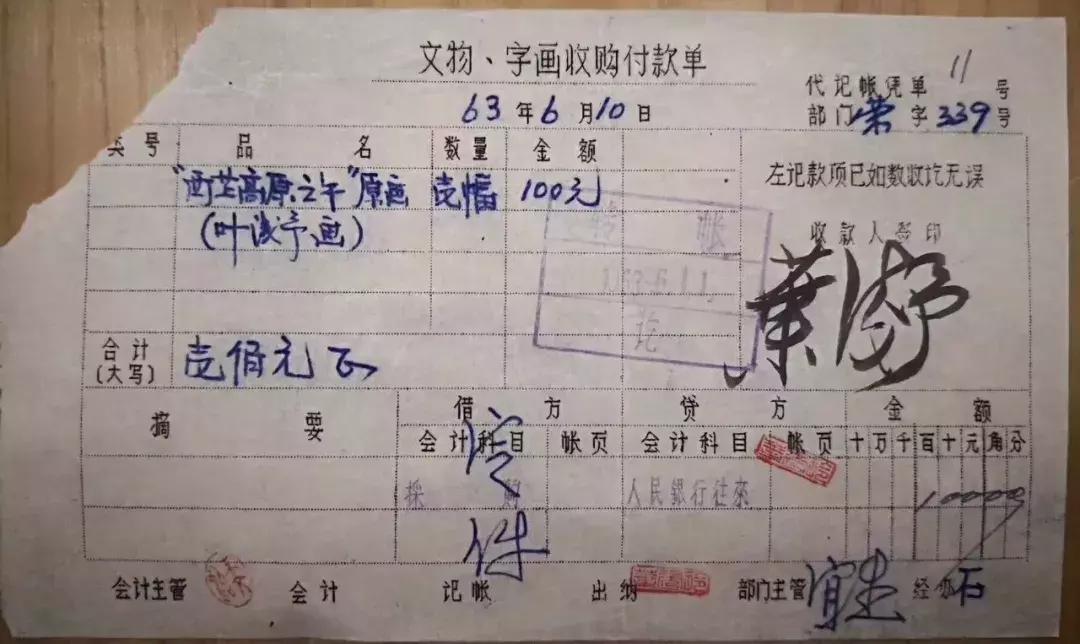 文物、字画收购付款单
代记帐凭单 11 号
63 年 6 月 10 日
部门 荣 字 339 号
类号 品名 数量 金额
左记款项已如数收讫无误
"西芷高原之午"原画 壱幅 100元
(叶浅予画)
收款人签印
转帐
讫
葉浅予
合计
(大写) 壱佰元正
摘要 借方 贷方 金额
会计科目 帐页 会计科目 帐页 十万千百十元角分
採购 人民銀行往來 10000
件
会计主管 会计 记帐 出纳 部门主管 宜生 经办 石